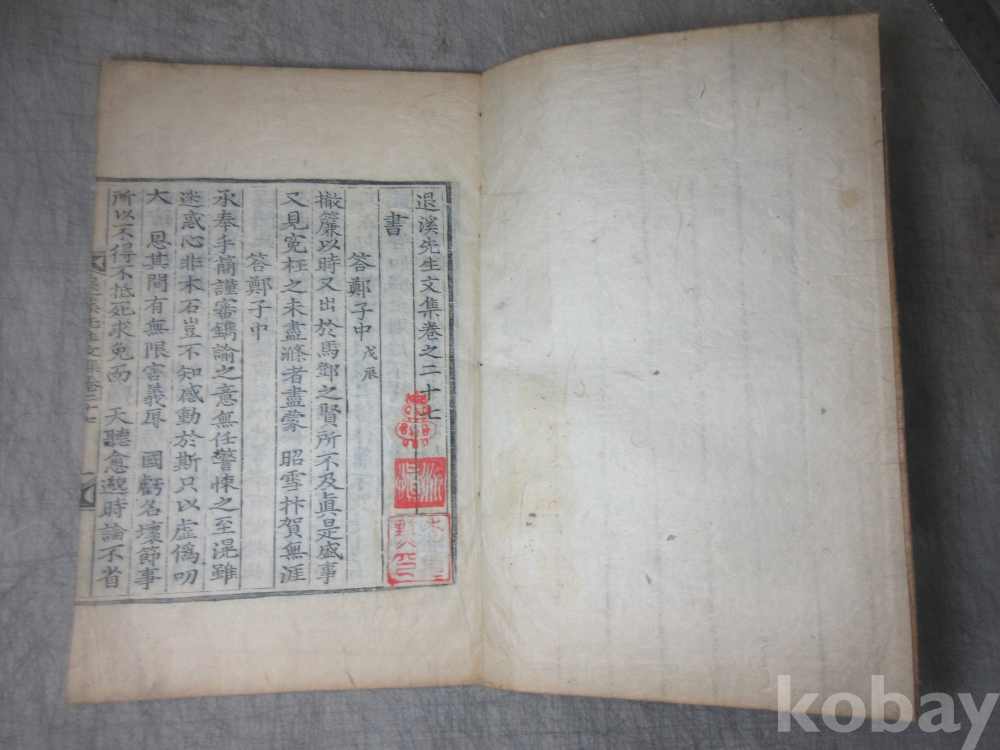 退溪先生文集卷之二十七
書
答鄭子中 戊辰
撤簾以時又出於馬鄧之賢所不及眞是盛事
又見寃枉之未盡滌者盡蒙 昭雪抃賀無涯
答鄭子中
承奉手簡謹審鐫諭之意無任警悚之至滉雖
迷惑心非木石豈不知感動於斯只以虛僞叨
大 恩其間有無限害義辱 國虧名壞節事
所以不得不抵死求免而 天聽愈邈時論不省
kobay